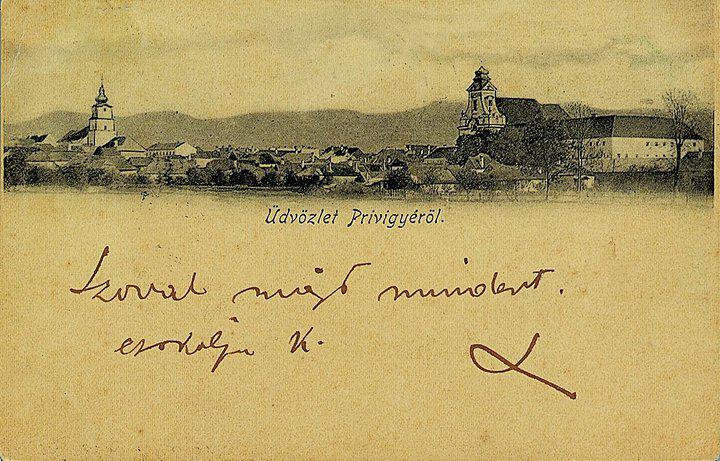 Üdvözlet Privigyéről.
Szoval majd mindent.
csokolja K.